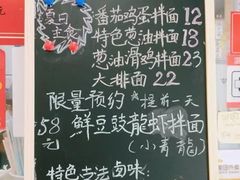 夏日
主食
番茄鸡蛋拌面 12
特色葱油拌面 13
葱油滑鸡拌面 23
大排面 22
限量预约 *提前一天
58元 鲜豆豉龙虾拌面
(小青龍)
特色古法卤味: